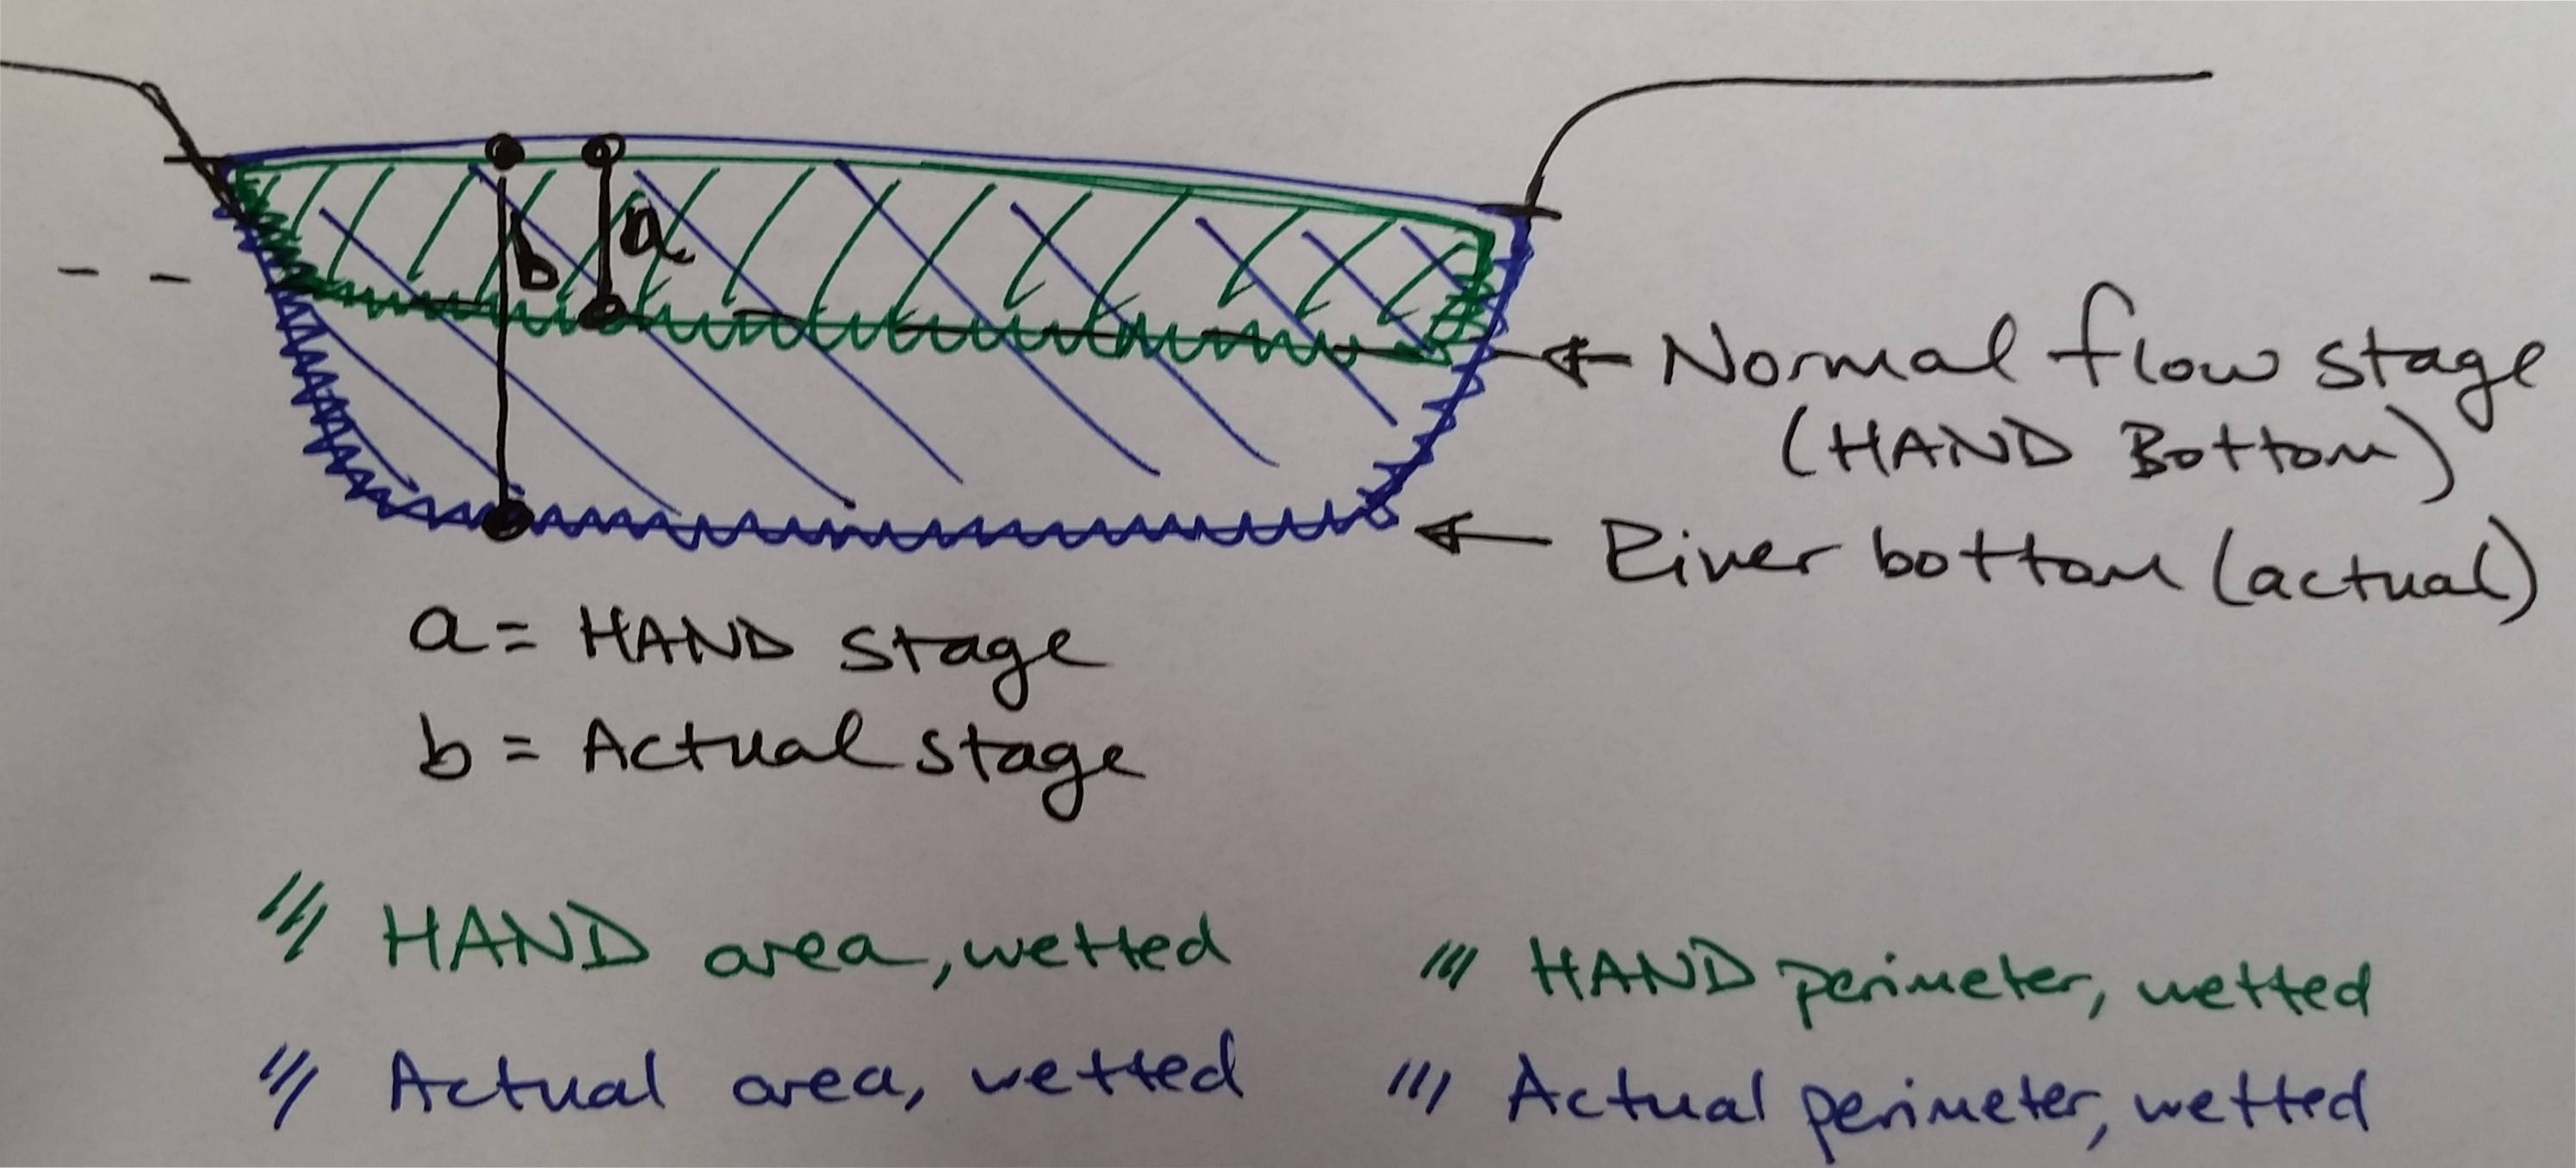 b a
Normal flow stage
(HAND Bottom)
River bottom (actual)
a = HAND stage
b = Actual stage
HAND area, wetted
HAND perimeter, wetted
Actual area, wetted
Actual perimeter, wetted